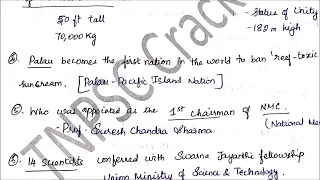 50 ft tall
70,000 Kg
- Statue of Unity
- 182 m high
④. Palau becomes the first nation in the world to ban 'reef-toxic'
sunscream. [Palau - Pacific Island Nation]
⑤. Who was appointed as the 1st chairman of NMC.
- Prof. Suresh Chandra Sharma (National Me
⑥. 14 Scientists conferred with Swarna Jayanthi fellowship
Union Ministry of Science & Technology.
TNPSC Crack